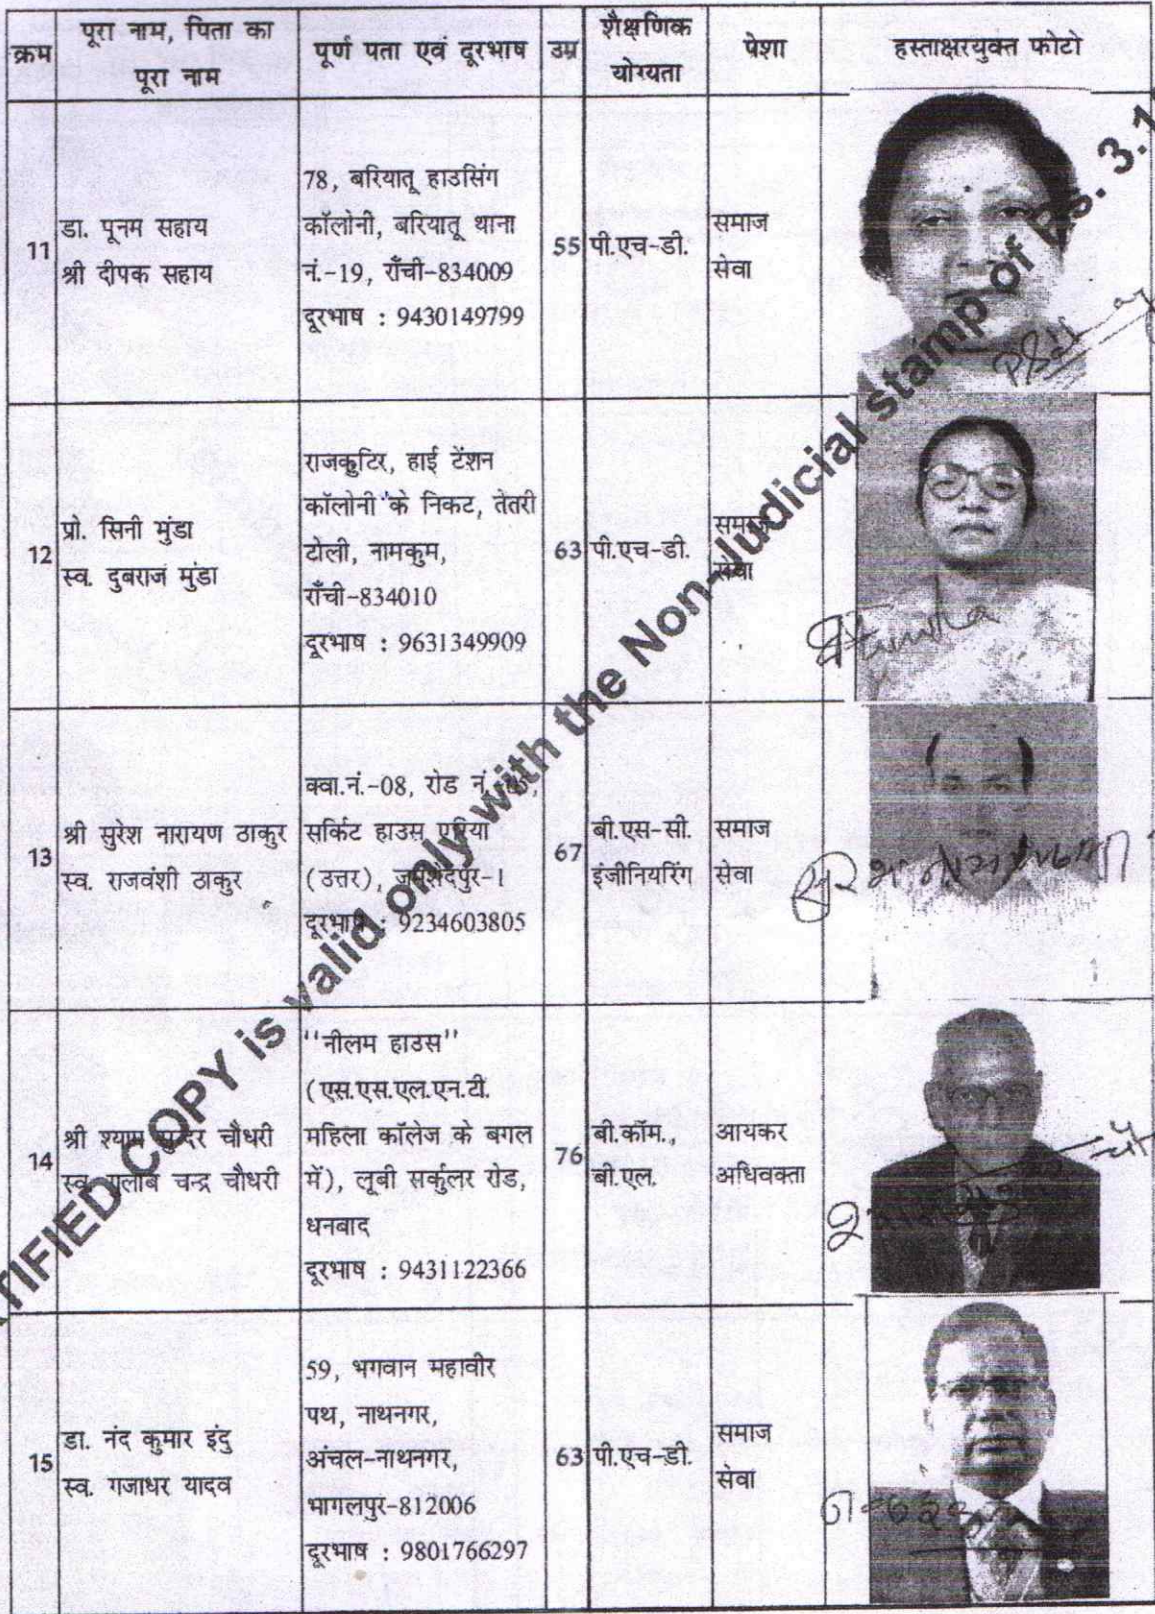 क्रम
पूरा नाम, पिता का
पूरा नाम
पूर्ण पता एवं दूरभाष
उम्र
शैक्षणिक
योग्यता
पेशा
हस्ताक्षरयुक्त फोटो
11
डा. पूनम सहाय
श्री दीपक सहाय
78, बरियातू हाउसिंग
कॉलोनी, बरियातू थाना
नं.-19, राँची-834009
दूरभाष : 9430149799
55
पी.एच-डी.
समाज
सेवा
12
प्रो. सिनी मुंडा
स्व. दुबराज मुंडा
राजकुटिर, हाई टेंशन
कॉलोनी के निकट, तेतरी
टोली, नामकुम,
राँची-834010
दूरभाष : 9631349909
63
पी.एच-डी.
समाज
सेवा
13
श्री सुरेश नारायण ठाकुर
स्व. राजवंशी ठाकुर
क्वा.नं.-08, रोड नं.
सर्किट हाउस एरिया
(उत्तर), जमशेदपुर-1
दूरभाष : 9234603805
67
बी.एस-सी.
इंजीनियरिंग
समाज
सेवा
14
श्री श्याम सुन्दर चौधरी
स्व. गुलाब चन्द्र चौधरी
''नीलम हाउस''
(एस.एस.एल.एन.टी.
महिला कॉलेज के बगल
में), लूबी सर्कुलर रोड,
धनबाद
दूरभाष : 9431122366
76
बी.कॉम.,
बी.एल.
आयकर
अधिवक्ता
15
डा. नंद कुमार इंदु
स्व. गजाधर यादव
59, भगवान महावीर
पथ, नाथनगर,
अंचल-नाथनगर,
भागलपुर-812006
दूरभाष : 9801766297
63
पी.एच-डी.
समाज
सेवा
TIFIED COPY is valid only with the Non-Judicial stamp of Rs. 3.1